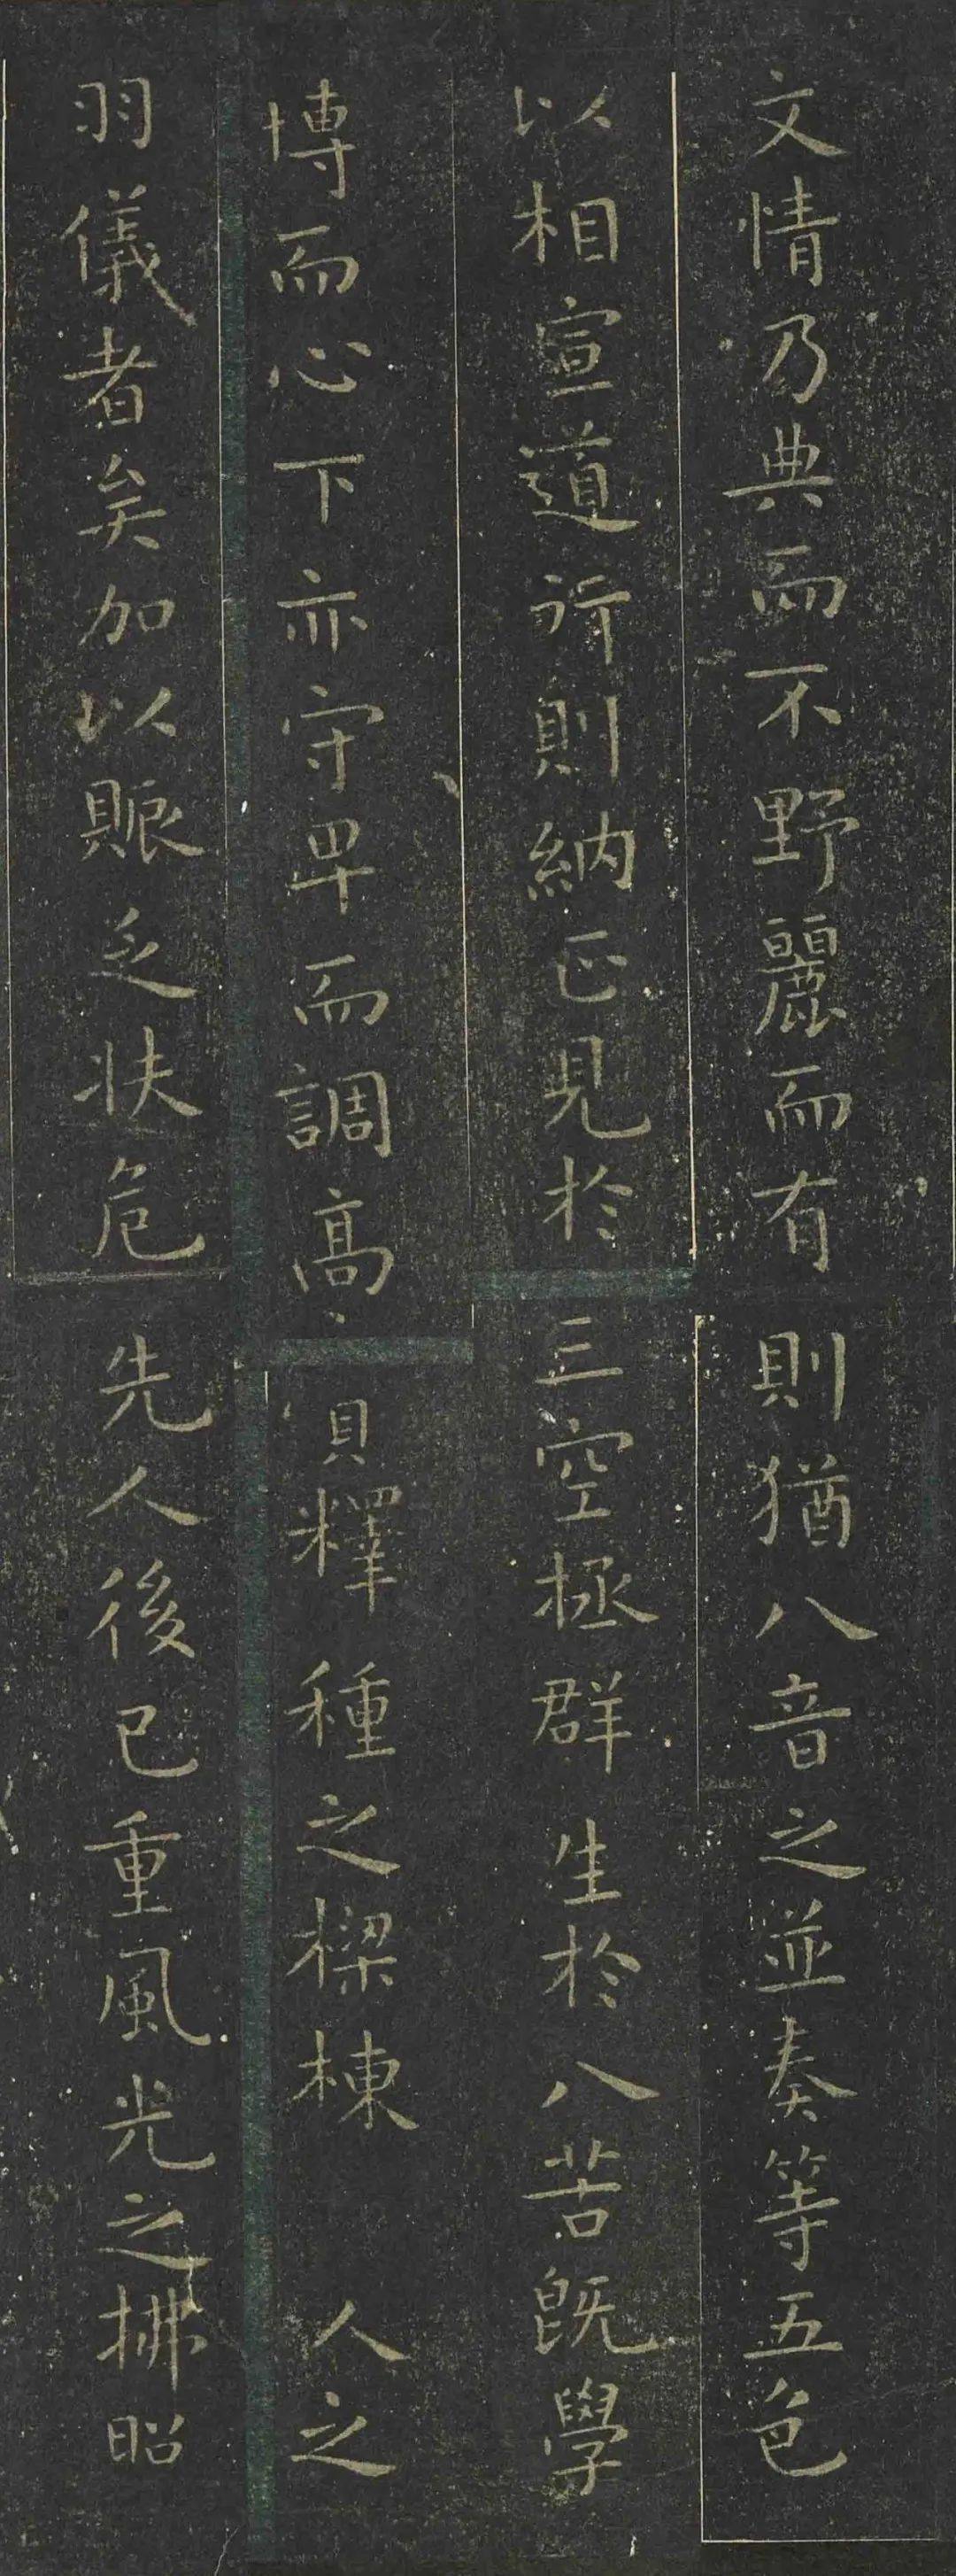 文情乃典而不野麗而有則猶八音之並奏等五色
以相宣道行則納正見於三空拯群生於八苦既學
博而心下亦守卑而調高實釋種之樑棟人之
羽儀者矣加以賑乏扶危先人後己重風光之拂照